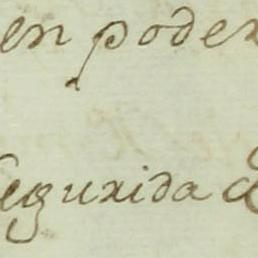 en poder
segurida d